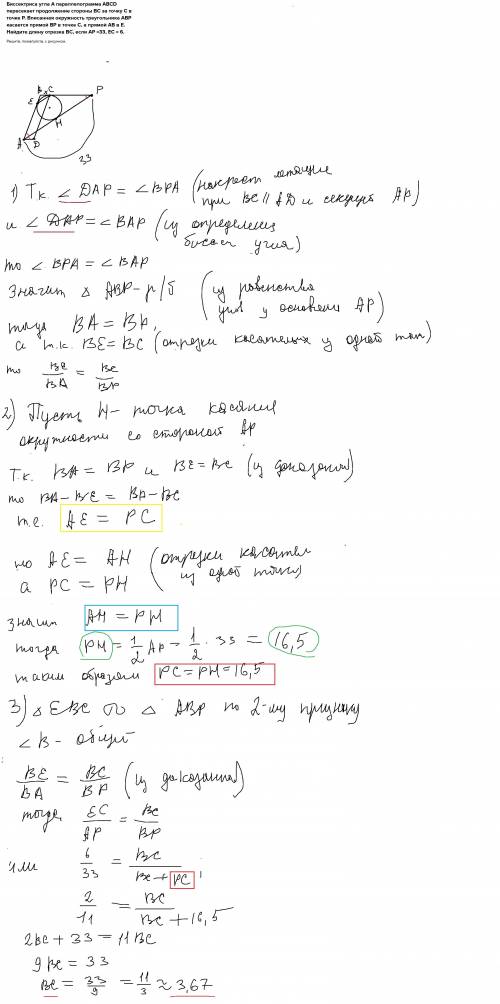 Биссектриса угла A параллелограмма ABCD
пересекает продолжение стороны BC за точку C в
точке P. Вписанная окружность треугольника ABP
касается прямой BP в точке C, а прямой AB в E.
Найдите длину отрезка BC, если AP =33, EC = 6.
Решите, пожалуйста, с рисунком.
B C P
E
H
A D
33
1) Т.к. ∠ DAP = ∠ BPA (накрест лежащие
при BC ∥ AD и секущей AP)
и ∠ DAP = ∠ BAP (из определения
биссект угла)
то ∠ BPA = ∠ BAP
Значит △ ABP - р/б (из равенства
углов у основания AP)
тогда BA = BP,
а т.к. BE = BC (отрезки касательных из одной точки)
то BE/BA = BC/BP
2) Пусть H - точка касания
окружности со стороной AP
Т.к. BA = BP и BE = BC (из доказания)
то BA - BE = BP - BC
т.е. AE = PC
но AE = AH (отрезки касател
а PC = PH из одной точки)
значит AH = PH
тогда PH = 1/2 AP = 1/2 · 33 = 16,5
таким образом PC = PH = 16,5
3) △ EBC ∾ △ ABP по 2-му признаку
∠ B - общий
BE/BA = BC/BP (из доказания)
тогда EC/AP = BC/BP
или 6/33 = BC/(BC + PC),
2/11 = BC/(BC + 16,5)
2BC + 33 = 11 BC
9 BC = 33
BC = 33/9 = 11/3 ≈ 3,67